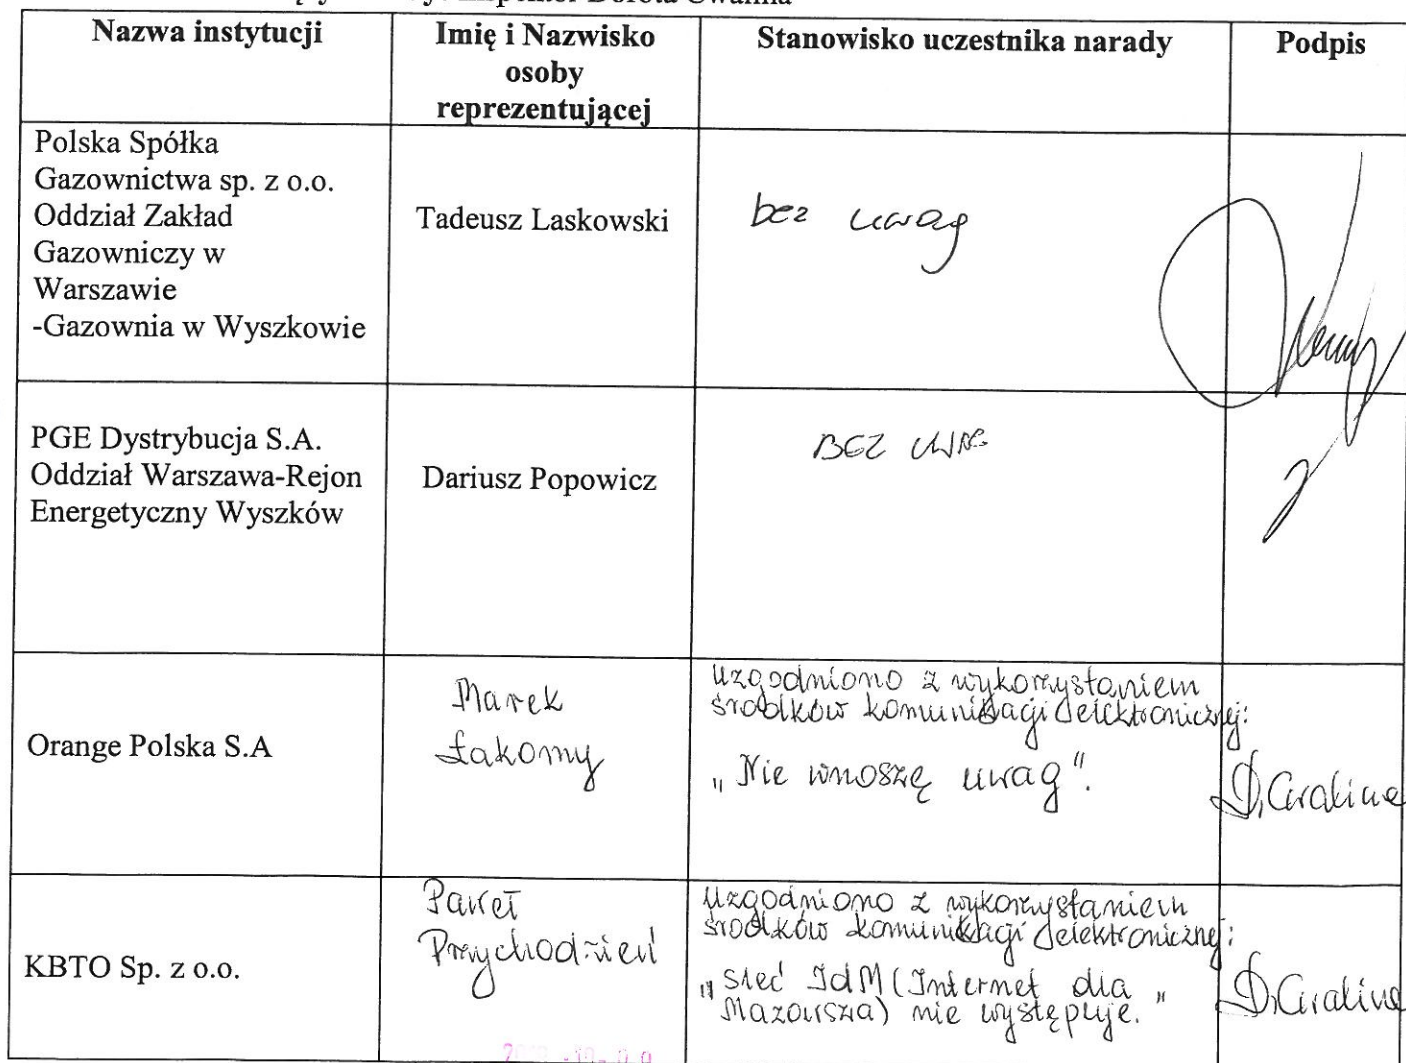 Inspektor Dorota
Nazwa instytucji
Imię i Nazwisko
osoby
reprezentującej
Stanowisko uczestnika narady
Podpis
Polska Spółka
Gazownictwa sp. z o.o.
Oddział Zakład
Gazowniczy w
Warszawie
-Gazownia w Wyszkowie
Tadeusz Laskowski
bez uwag
PGE Dystrybucja S.A.
Oddział Warszawa-Rejon
Energetyczny Wyszków
Dariusz Popowicz
BEZ UWAG
Orange Polska S.A
Marek
Łakomy
Uzgodniono z wykorzystaniem
środków komunikacji elektronicznej:
„Nie wnoszę uwag".
KBTO Sp. z o.o.
Paweł
Przychodzień
Uzgodniono z wykorzystaniem
środków komunikacji elektronicznej:
„Sieć IdM (Internet dla
Mazowsza) nie występuje."